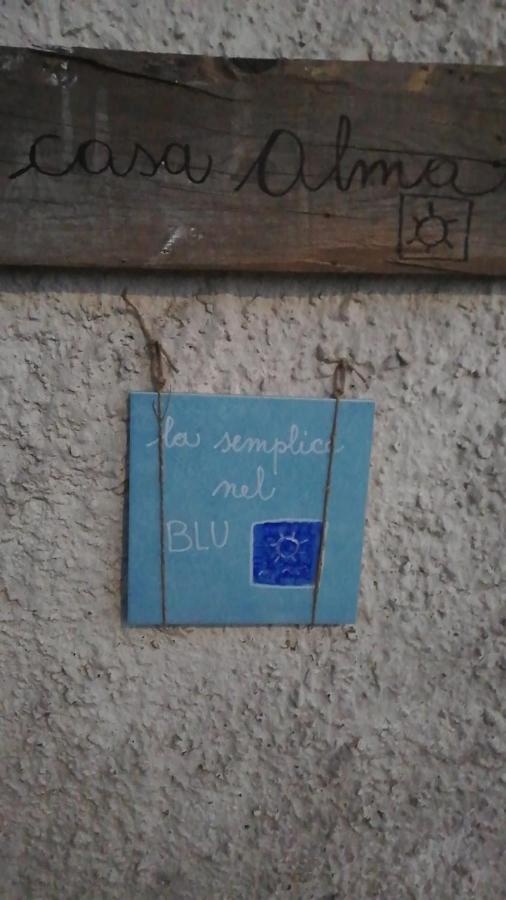 casa Alma
la semplice
nel
BLU